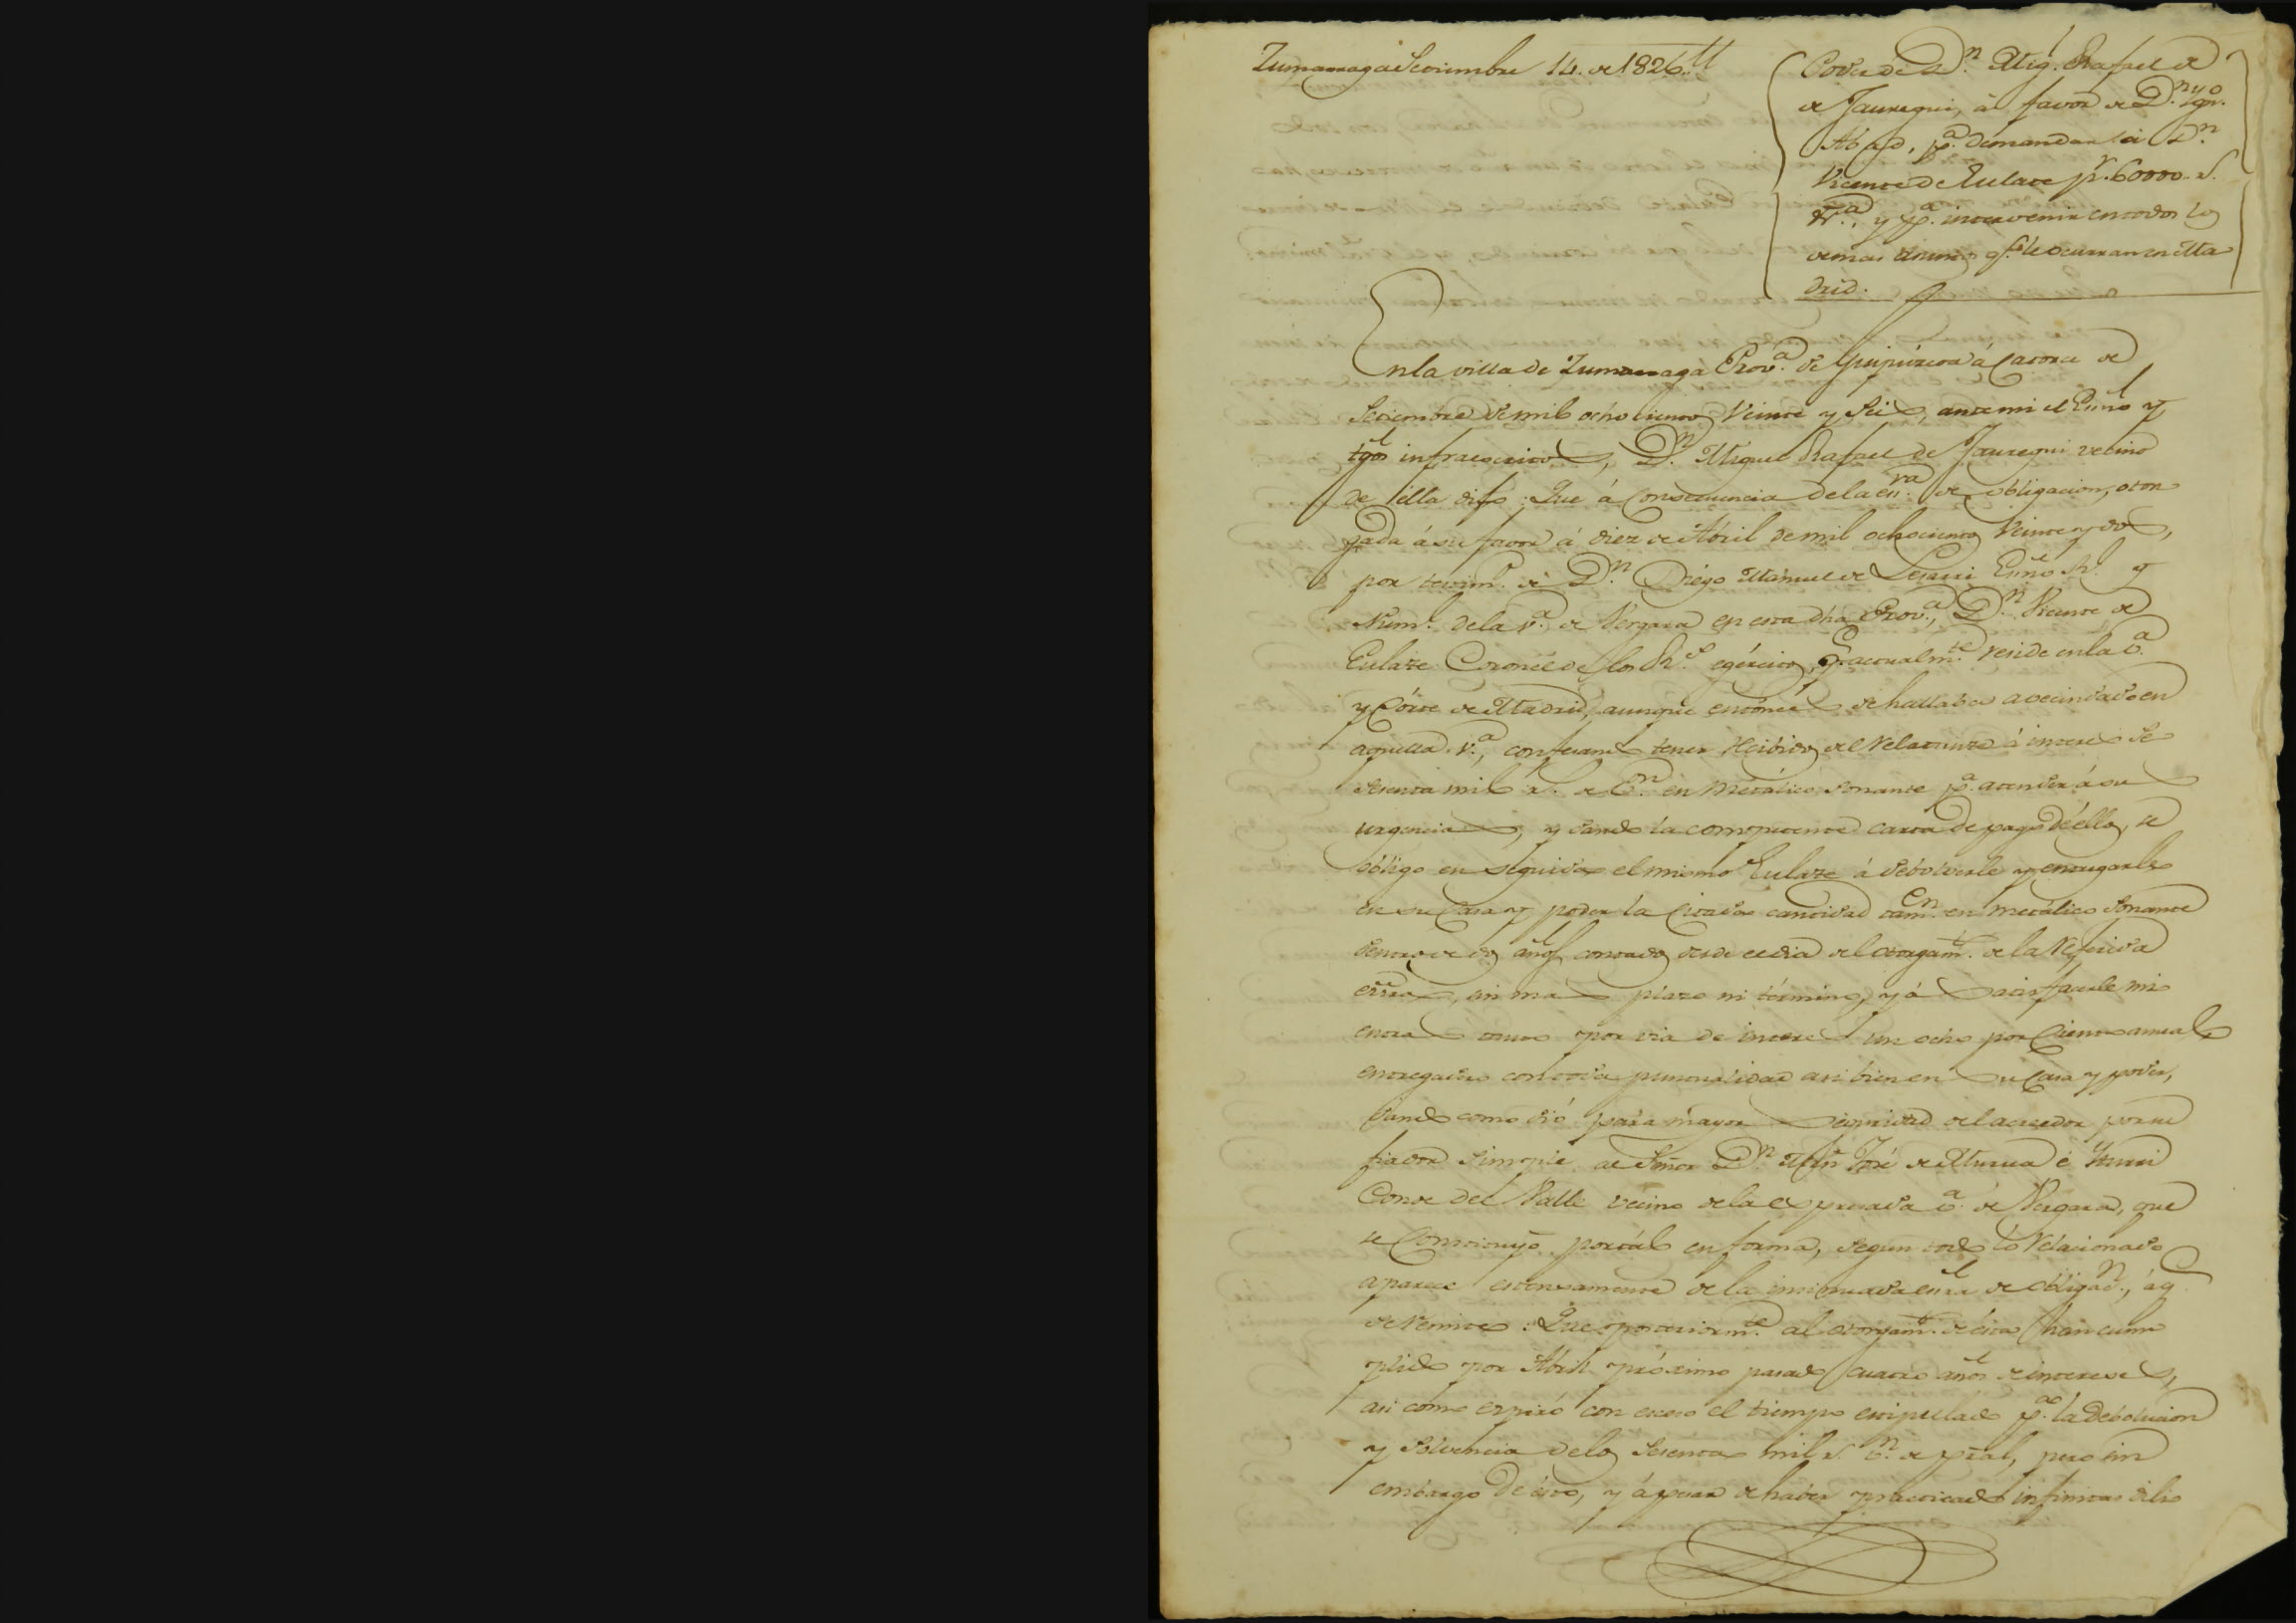 Zumarraga Setiembre 14. de 1826.
Poder de Dn. Mig.l Rafael de
de Jauregui, à favor de D.n Ygn.o
Abad, p.a demandar à D.n
Vicente de Eulate p.r 60000 r.s
v.n, y p.a intervenir en todos los
demas asuntos q.e le ocurran en Ma
drid.
En la villa de Zumarraga Prov.a de Guipúzcoa á Catorce de
Setiembre de mil ochocientos Veinte y Seis, ante mi el Esñō y
tgōs infraescritos, D.n Miguel Rafael de Jauregui vecino
de élla dijo: Que á Consecuencia de la esn.ra de obligacion, otor
gada á su favor á diez de Abril de mil ochocientos Veinte y dos,
por testim.o de D.n Diego Manuel de Lesarri Esñō R.l y
Num.l de la v.a de Vergara en esta dhā Prov.a, D.n Vicente de
Eulate Coronél de los R.s egércitos, q.e actualm.te reside en la v.a
y Córte de Madrid, aunque entónces se hallaba avecindado en
aquella v.a, confesando tener Recibidos del Relatante á interes de
Sesenta mil r.s de v.n en metálico Sonante p.a atender á sus
urgencias, y dando la competente carta de pago de éllos, se
obligó en seguida el mismo Eulate á debolverle y entregarle
en su Casa y poder la Citada cantidad tam.en en metálico Sonante
dentro de dos años contados desde el dia del otorgam.to de la Referida
esrrā, sin mas plazo ni término, y á Satisfacerle mi
entras tanto por via de interes un ocho por Ciento anual
entregados con toda puntualidad asi bien en su Casa y poder,
dando como dió para mayor Seguridad del acreedor por su
fiador Simple al Señor D.n José de Murua é
Conde del Valle vecino de la expresada v.a de Vergara, que
se Constituyó por tál en forma, Segun todo lo Relacionado
aparece estensamente de la insinuada esrā de obligac.n, á q.e
se Remite: Que posteriorm.te al otorgam.to de ésta han cum
plido por Abril próximo pasado cuatro años de intereses,
asi cómo espiró con exceso el tiempo estipulado p.a la debolucion
y Solvencia de los Sesenta mil r.s v.n de prāl, pero sin
embargo de ésto, y á pesar de haber practicado infinitas dili